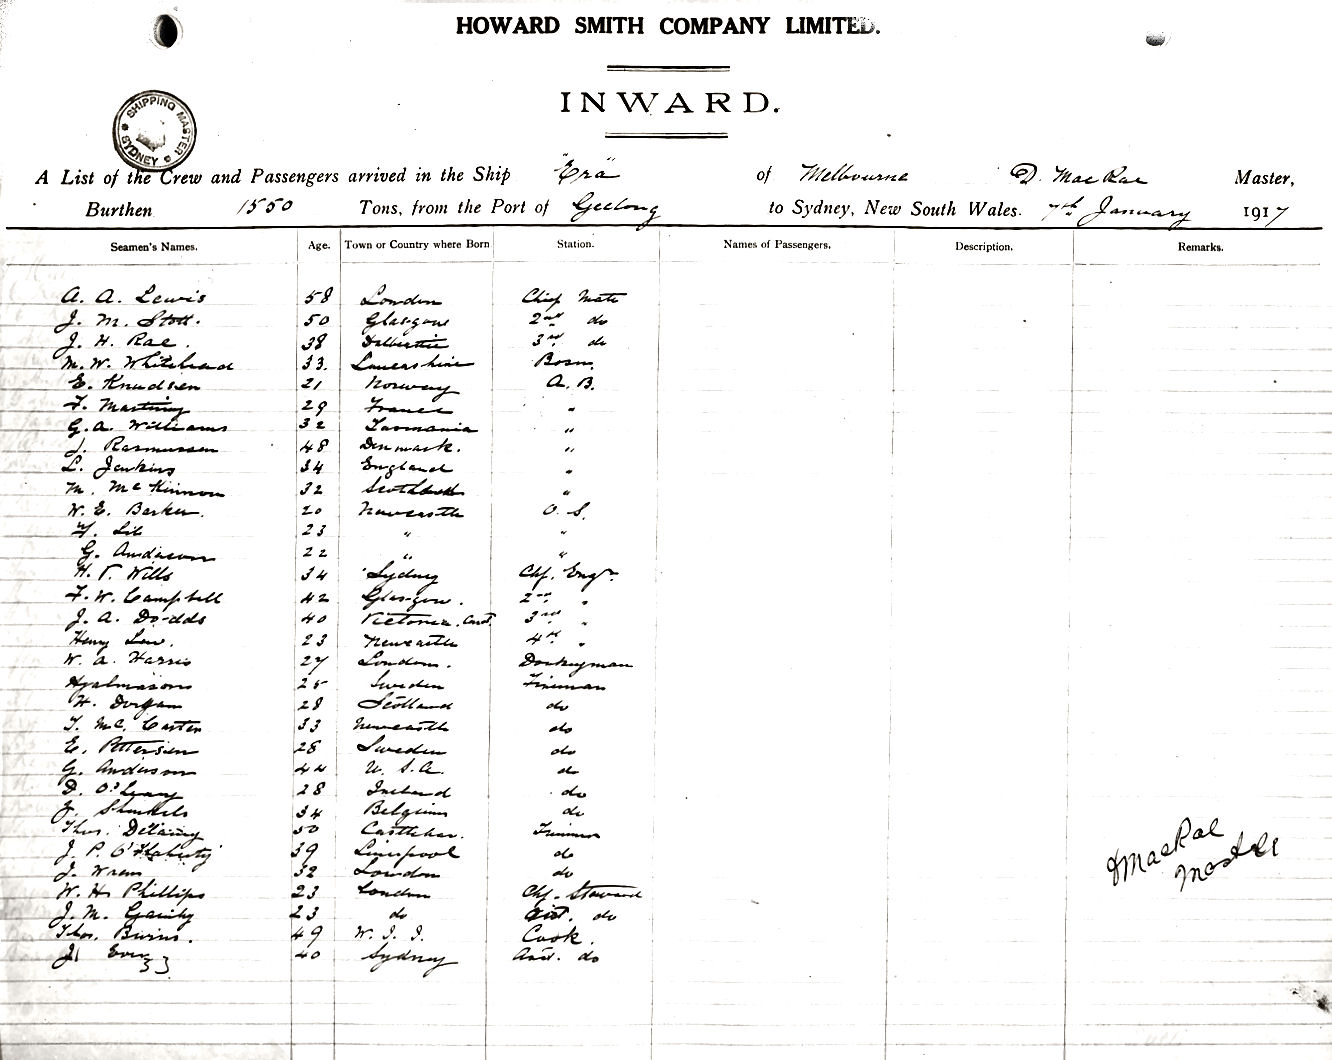 HOWARD SMITH COMPANY LIMITED.
INWARD.
SHIPPING MASTER SYDNEY
A List of the Crew and Passengers arrived in the Ship "Era" of Melbourne D. MacRae Master,
Burthen 1550 Tons, from the Port of Geelong to Sydney, New South Wales. 7th January 1917
Seamen's Names. Age. Town or Country where Born Station. Names of Passengers. Description. Remarks.
A. A. Lewis 58 London Chief Mate
J. M. Stott. 50 Glasgow 2nd do
J. H. Rae. 38 3rd do
M. W. Whitehead 33. Lancashire Bosn.
E. Knudsen 21 Norway A. B.
F. 29 France "
G. A. Williams 32 Tasmania "
J. Rasmussen 48 Denmark. "
L. Jenkins 34 England "
M. McKinnon 32 Scotland "
W. E. Barker. 20 Newcastle O. S.
23 " "
G. Anderson 22 " "
H. V. Wills 34 Sydney Chf. Engr.
F. W. Campbell 42 Glasgow. 2nd "
J. A. Dodds 40 Victoria. Aust. 3rd "
Henry Law. 23 Newcastle 4th "
W. A. Harris 27 London. Donkeyman
25 Sweden Fireman
H. 28 Scotland do
T. Mc. Carten 33 Newcastle do
E. Pettersen 28 Sweden do
G. Anderson 44 U. S. A. do
D. O'Leary 28 Ireland do
34 Belgium do
Thos. Delaney 50 Castlebar. Trimmer
J. P. O'Flaherty 39 Liverpool do
J. Wrenn 32 London do
W. H. Phillips 23 London Chf. Steward
J. M. 23 do Asst. do
Thos. Burns. 49 W. I. I. Cook.
J. 40 Sydney Asst. do
D MacRae
Master